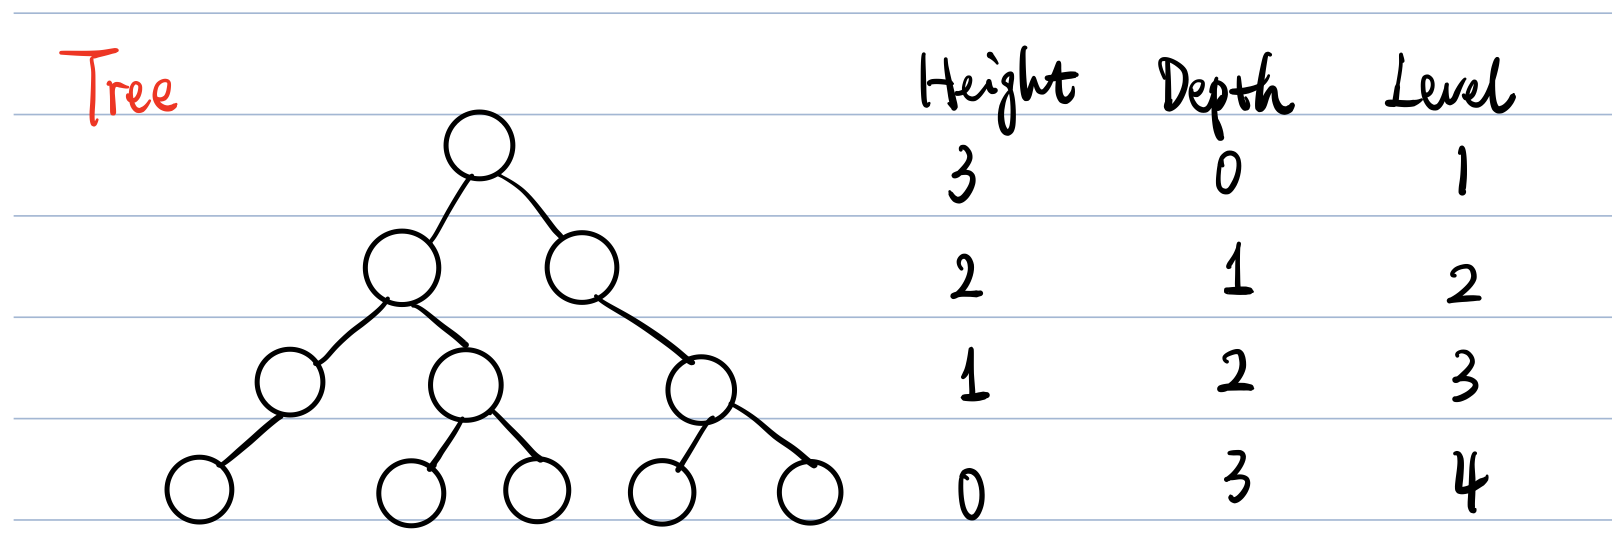 Tree
Height Depth Level
3 0 1
2 1 2
1 2 3
0 3 4